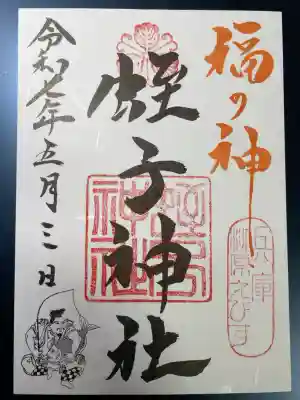 福の神
蛭子神社
令和七年五月三日
蛭子神社
兵庫
柳原えびす